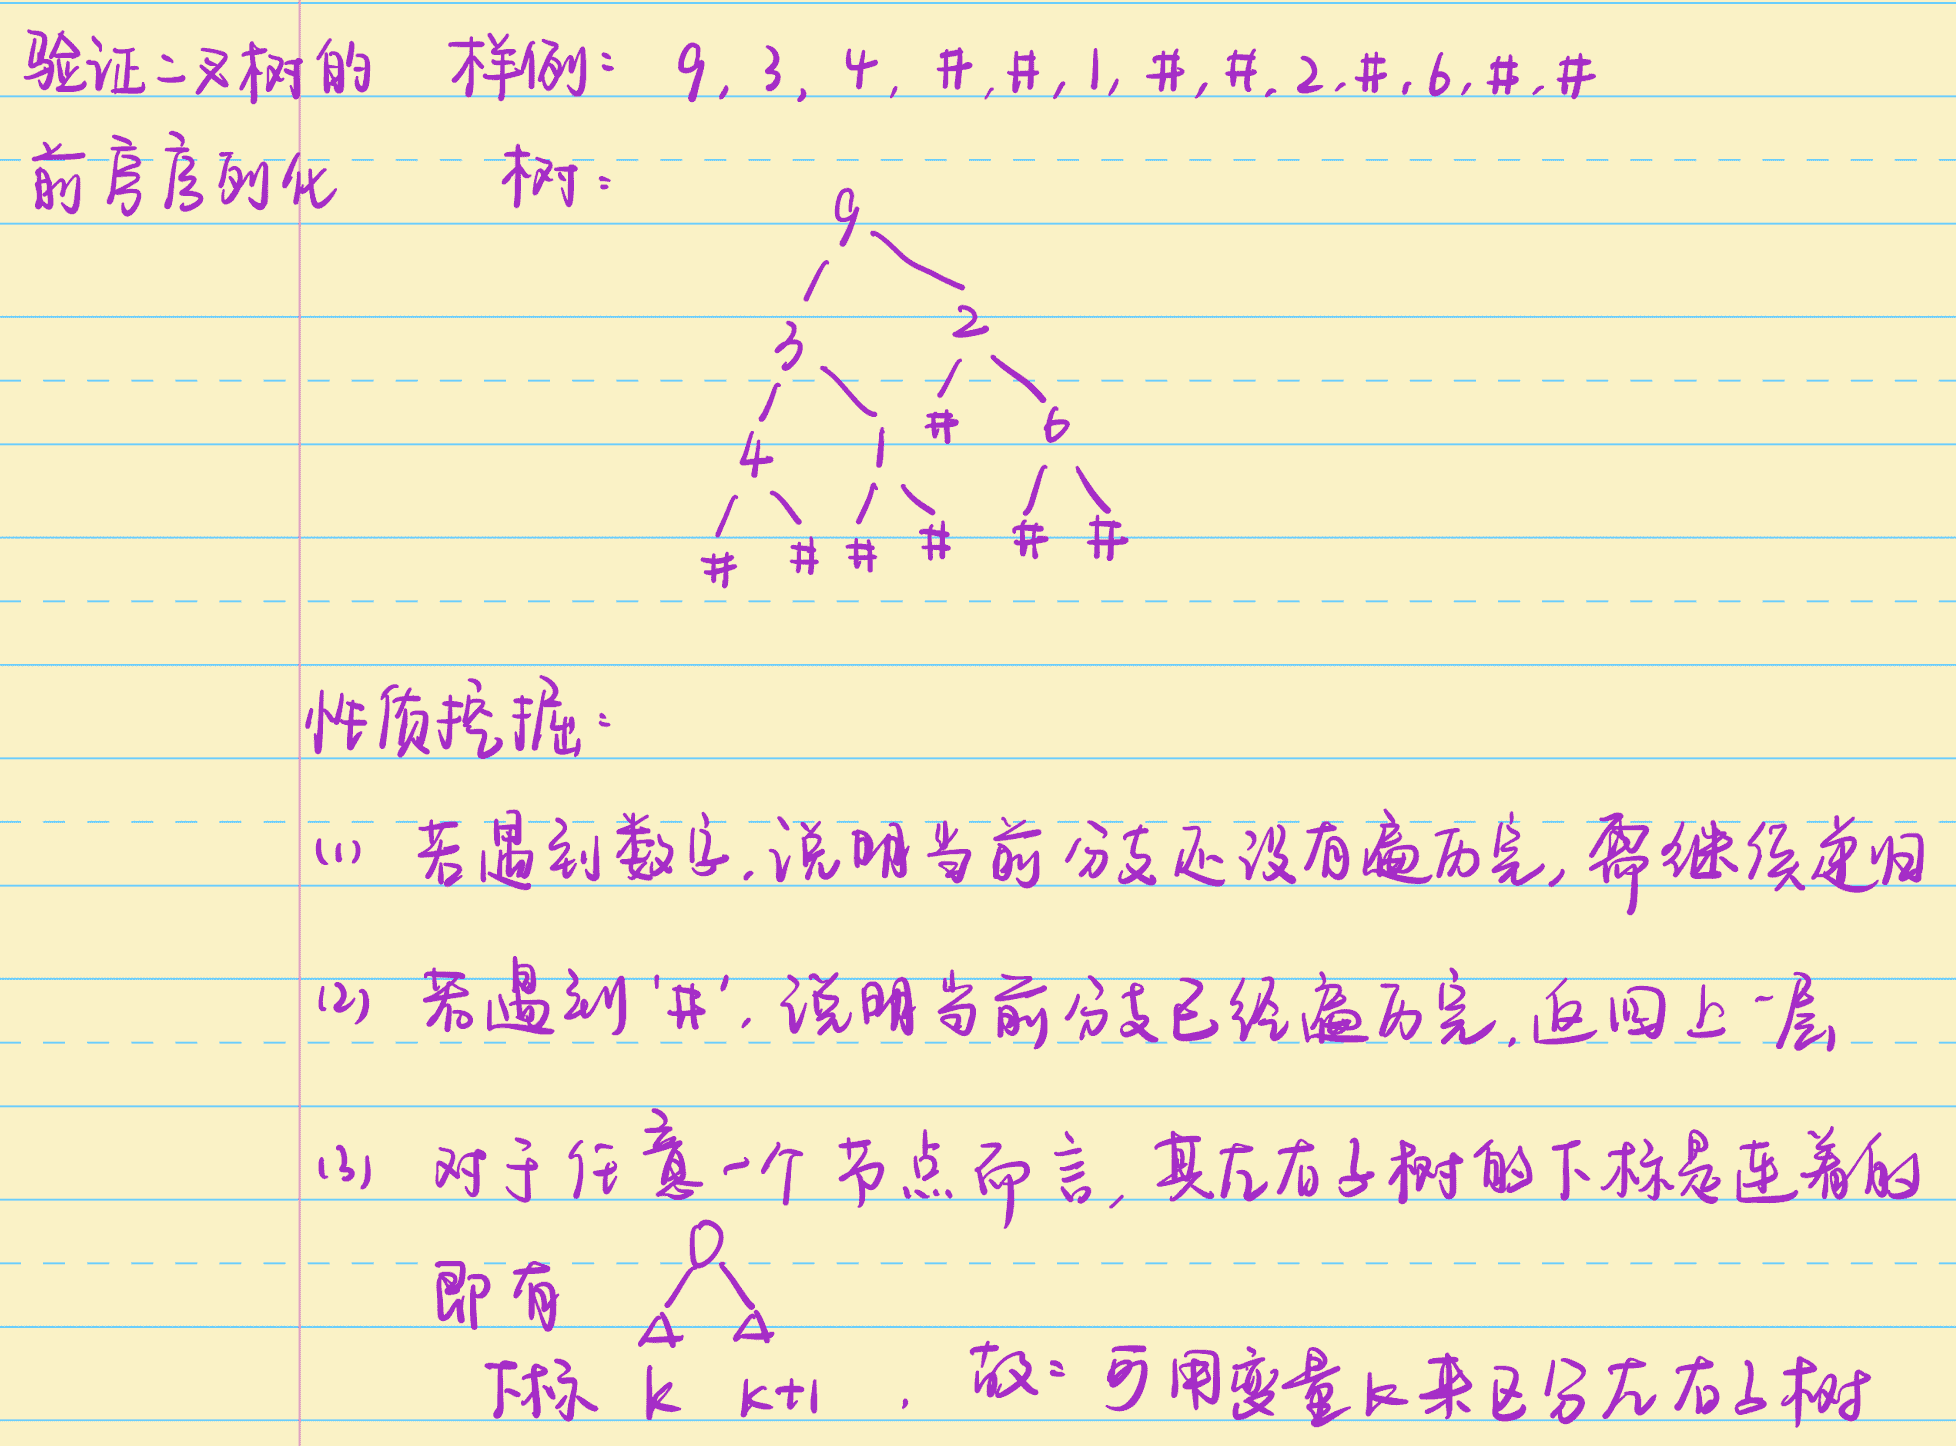 验证二叉树的 样例： 9, 3, 4, #, #, 1, #, #, 2, #, 6, #, #
前序序列化 树：
9
3 2
4 1 # 6
# # # # # #
性质挖掘：
(1) 若遇到数字, 说明当前分支还没有遍历完, 需继续递归
(2) 若遇到'#', 说明当前分支已经遍历完, 返回上一层
(3) 对于任意一个节点而言, 其左右子树的下标是连着的
即有
下标 k k+1 , 故：可用变量k来区分左右子树